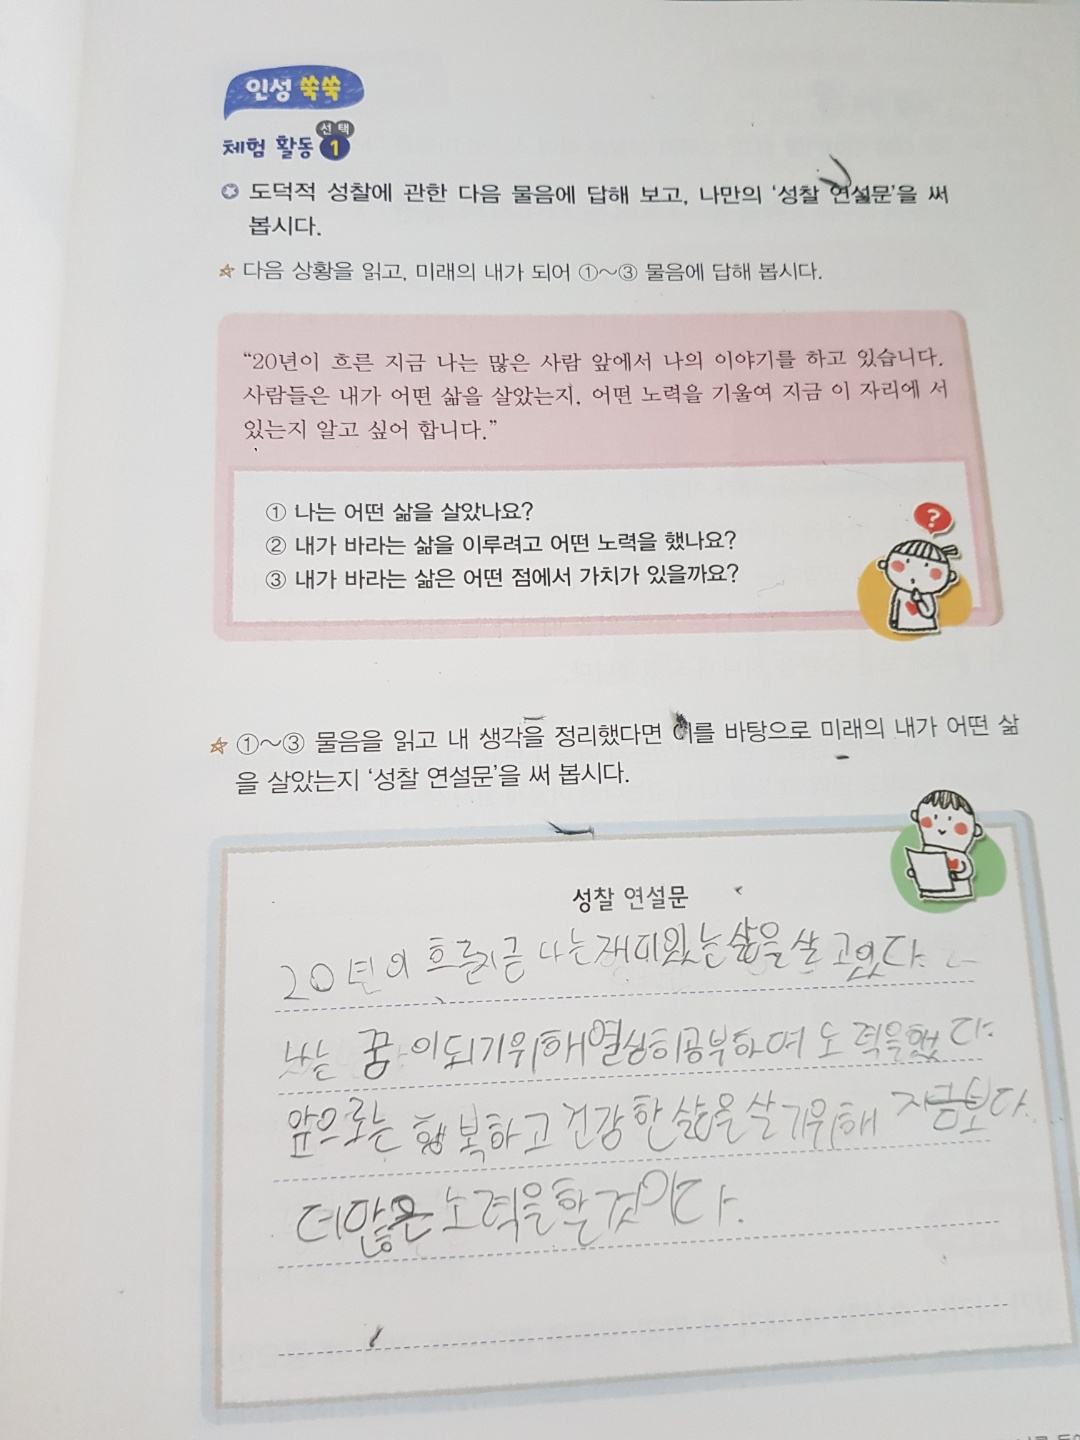 인성 쑥쑥
체험 활동 선택 1
도덕적 성찰에 관한 다음 물음에 답해 보고, 나만의 ‘성찰 연설문’을 써
봅시다.
다음 상황을 읽고, 미래의 내가 되어 ①~③ 물음에 답해 봅시다.
“20년이 흐른 지금 나는 많은 사람 앞에서 나의 이야기를 하고 있습니다.
사람들은 내가 어떤 삶을 살았는지, 어떤 노력을 기울여 지금 이 자리에 서
있는지 알고 싶어 합니다.”
?
① 나는 어떤 삶을 살았나요?
② 내가 바라는 삶을 이루려고 어떤 노력을 했나요?
③ 내가 바라는 삶은 어떤 점에서 가치가 있을까요?
①~③ 물음을 읽고 내 생각을 정리했다면 이를 바탕으로 미래의 내가 어떤 삶
을 살았는지 ‘성찰 연설문’을 써 봅시다.
성찰 연설문
20년의 흐른지금 나는재미있는삶을살고있다.
나는 꿈이되기위해열심히공부하며 노력을했다.
앞으로는 행복하고 건강한삶을살기위해 지금보다
더많은노력을할것이다.